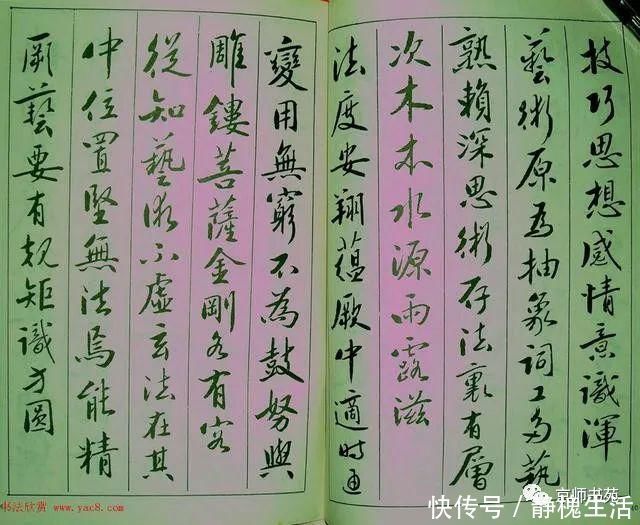 技巧思想感情意識渾
藝術原为抽象詞工多藝
熟賴深思術存法裏有層
次木本水源雨露滋
法度安翔蘊厥中適时通
變用無窮不為鼓努與
雕鏤菩薩金剛各有容
從知藝術不虛玄法在其
中位置堅無法焉能精
厥藝要有規矩識方圓
书法欣赏 www.yac8.com
京师书苑
快传号／静槐生活